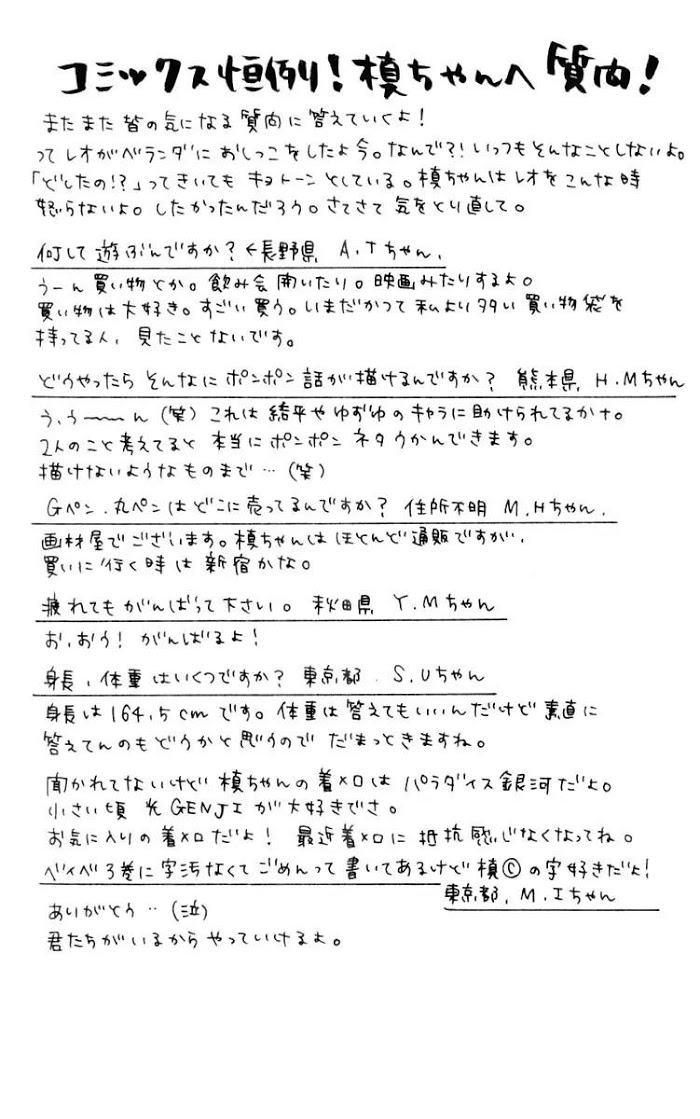 コミックス恒例!槙ちゃんへ質問!
またまた皆の気になる質問に答えていくよ!
ってレオがベランダにおしっこをしたよ今。なんで?!いっつもそんなことしないよ。
「どしたの!?」ってきいてもキョトーンとしている。槙ちゃんはレオをこんな時
怒らないよ。したかったんだろう。さてさて気をとり直して。
何して遊ぶんですか?←長野県 A.Tちゃん.
うーん買い物とか。飲み会開いたり。映画みたりするよ。
買い物は大好き。すごい買う。いまだかつて私より多い買い物袋を
持ってる人、見たことないです。
どうやったらそんなにポンポン話が描けるんですか? 熊本県 H.Mちゃん
う、う〜〜ん(笑)これは綺平やゆずゆのキャラに助けられてるかナ。
2人のこと考えてると本当にポンポンネタうかんできます。
描けないようなものまで…(笑)
Gペン、丸ペンはどこに売ってるんですか? 住所不明 M.Hちゃん.
画材屋でございます。槙ちゃんはほとんど通販ですが、
買いに行く時は新宿かな。
疲れてもがんばって下さい。 秋田県 Y.Mちゃん
お、おう!がんばるよ!
身長、体重はいくつですか? 東京都. S.Uちゃん
身長は164.5cmです。体重は答えてもいいんだけど素直に
答えてんのもどうかと思うのでだまっときますね。
聞かれてないけど槙ちゃんの着メロはパラダイス銀河だよ。
小さい頃光GENJIが大好きでさ。
お気に入りの着メロだよ! 最近着メロに抵抗感じなくなってね。
ベイベ3巻に字汚なくてごめんって書いてあるけど槙©の字好きだよ!
東京都, M.Iちゃん
ありがとう‥(泣)
君たちがいるからやっていけるよ。